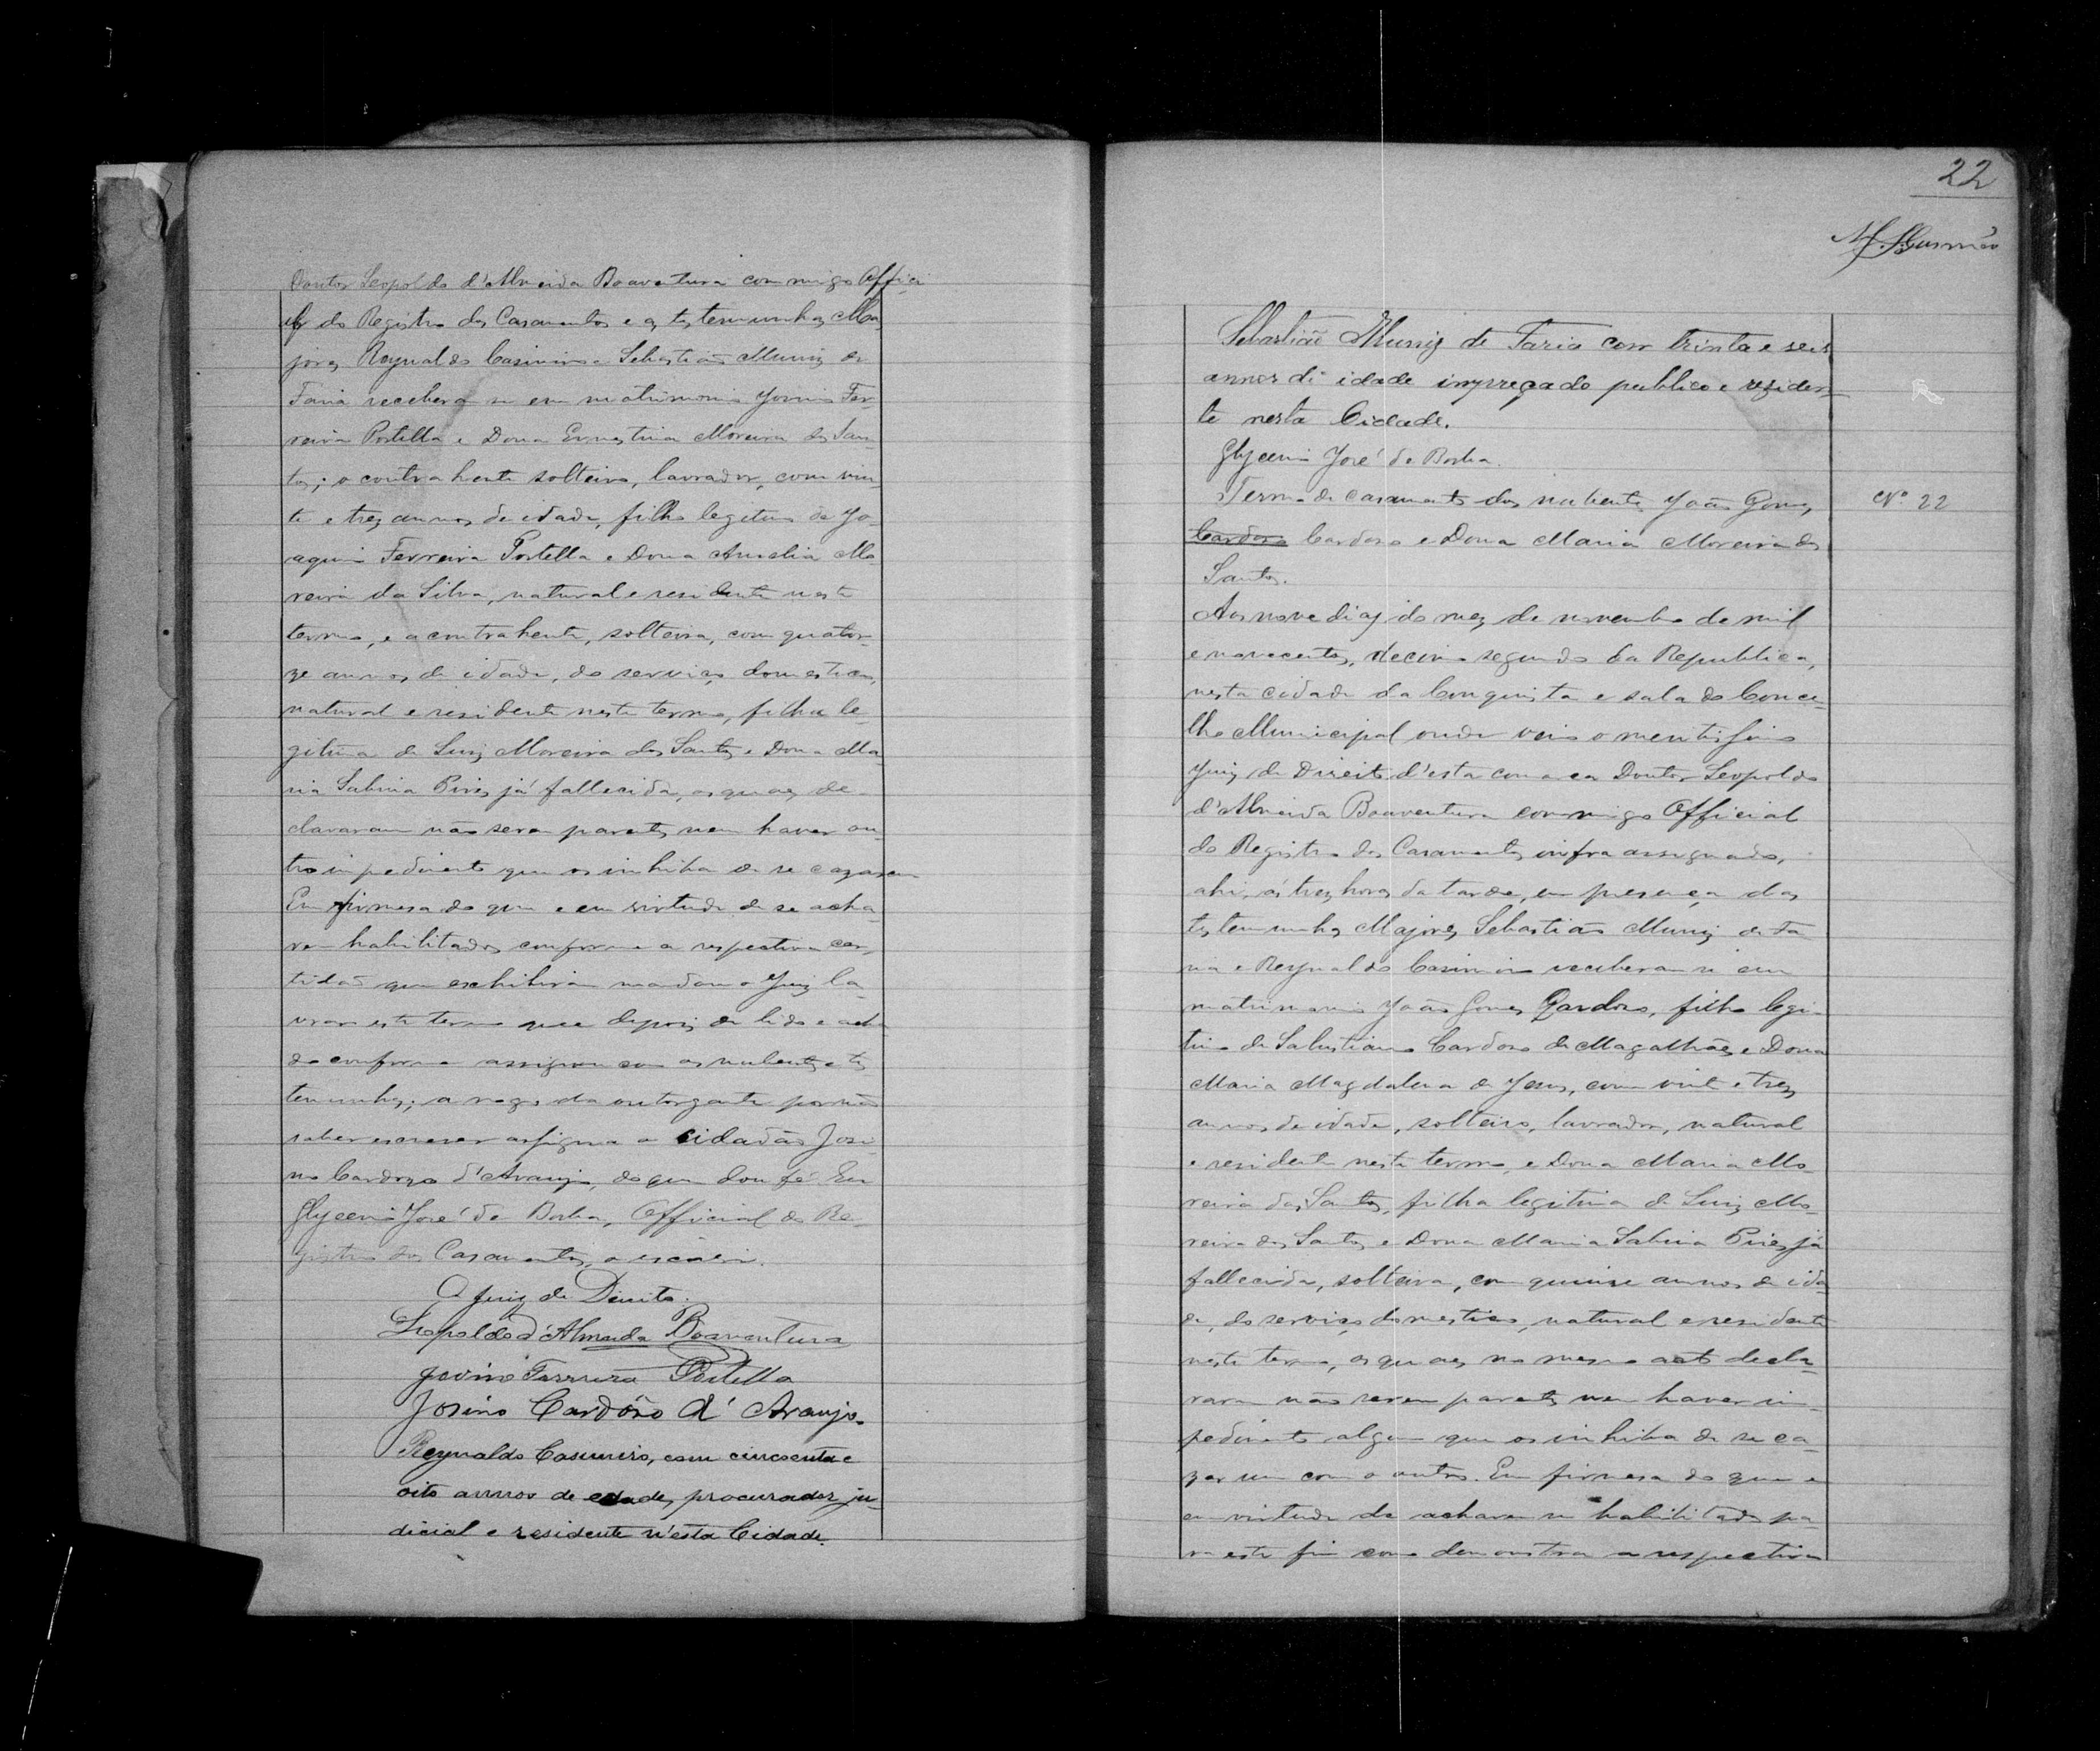 Doutor Leopoldo d'Almeida Boaventura commigo Offici
al do Registro dos Casamentos e as testemunhas Ma
jores Reynaldo Casimiro e Sebastião Muniz de
Faria receberam se em matrimonio Jovino Fer-
reira Portella e Dona Ernestina Moreira dos San-
tos; o contrahente solteiro, lavrador, com vin-
te e trez annos de idade, filho legitimo de Jo-
aquim Ferreira Portella e Dona Amelia Mo
reira da Silva, natural e residente neste
termo, e a contrahente, solteira, com quator-
ze annos de idade, do serviço domestico,
natural e residente neste termo, filha le-
gitima de Luiz Moreira dos Santos e Dona Ma
ria Sabina Pires já fallecida, os quaes de-
clararam não serem parentes nem haver ou-
tro impedimento que os inhiba de se cazarem
Em firmesa do que e em virtude de se acha-
rem habilitados conforme a respectiva cer-
tidão que exhibiram mandou o Juiz la-
vrar este termo que depois de lido e acha
do conforme assignou com os nubentes e tes
temunhas; a rogo da outorgante por não
saber escrever assigna o cidadão Josi
no Cardozo d'Araujo, do que dou fé. Eu
Glycerio José da Borba, Official do Re-
gistro dos Casamentos, o escrevi.
O Juiz de Direito.
Leopoldo d'Almeida Boaventura
Jovino Ferreira Portella
Josino Cardôso d'Araujo.
Reynaldo Casimiro, com cincoenta e
oito annos de edade, procurador ju-
dicial e residente n'esta Cidade.
22
Sebastião Muniz de Faria com trinta e seis
annos di idade impreçado publico e reziden-
te nesta Cidade.
Glycerio José da Borba.
Termo de casamento dos nubentes João Gomes
Cardoso Cardoso e Dona Maria Moreira dos
Santos.
Nº 22
Aos nove dias do mez de novembro de mil
e novecentos, decimo segundo da Republica,
nesta cidade da Conquista e sala do Conce-
lho Municipal onde veio o meritissimo
Juiz de Direito d'esta comarca Doutor Leopoldo
d'Almeida Boaventura commigo Official
do Registro dos Casamentos infra assignado,
ahi, ás trez horas da tarde, em presença das
testemunhas Majores Sebastião Muniz de Fa
ria e Reynaldo Casimiro receberam se em
matrimonio João Gomes Cardoso, filho legi-
timo de Salustiano Cardoso de Magalhães e Dona
Maria Magdalena de Jesus, com vinte e trez
annos de idade, solteiro, lavrador, natural
e residente neste termo, e Dona Maria Mo-
reira dos Santos, filha legitima de Luiz Mo-
reira dos Santos e Dona Maria Sabina Pires já
fallecida, solteira, com quinze annos de ida
de, do serviço domestico, natural e residente
neste termo, os quaes no mesmo acto decla-
raram não serem parentes nem haver im-
pedimento algum que os inhiba de se ca-
zar um com o outro. Em firmesa do que e
em virtude de acharem se habilitados pa-
ra este fim como demonstra a respectiva